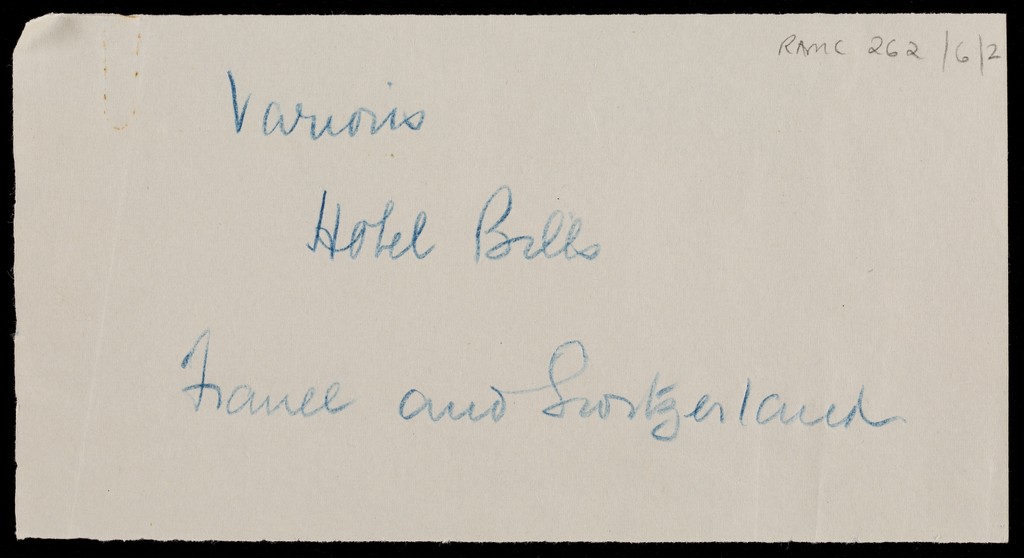 RAMC 262/6/2
Various
Hotel Bills
France and Switzerland